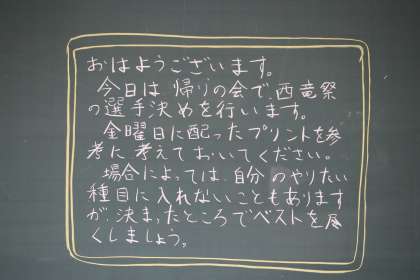 おはようございます。
今日は帰りの会で、西竜祭
の選手決めを行います。
金曜日に配ったプリントを参
考に考えておいてください。
場合によっては、自分のやりたい
種目に入れないこともあります
が、決まったところでベストを尽
くしましょう。